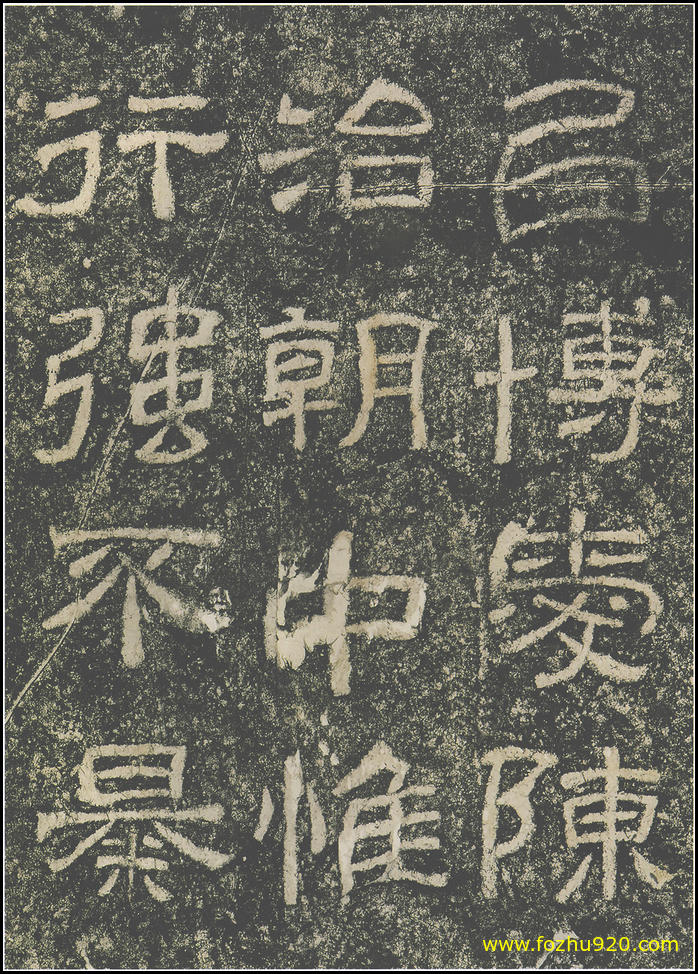 㠯博愛陳
治朝中惟
行強不暴
www.fozhu920.com